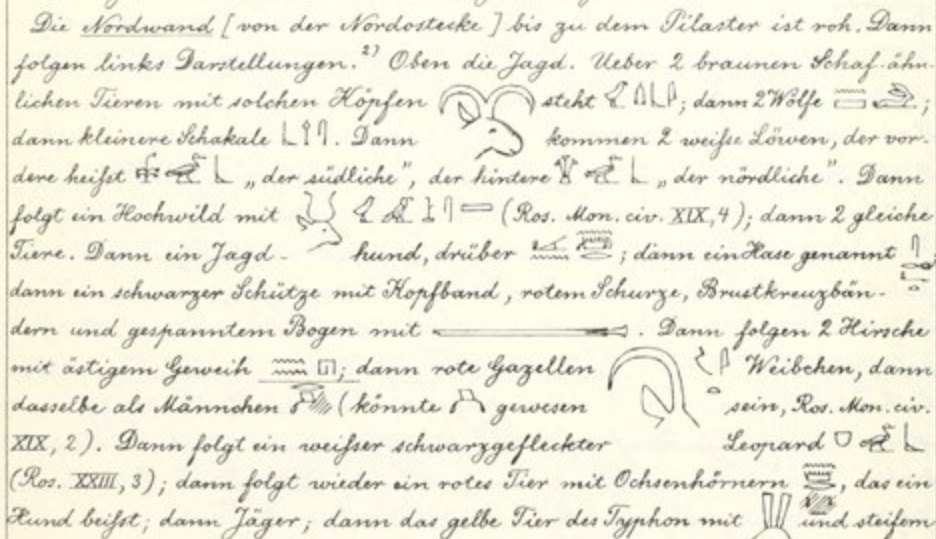 Die Nordwand [von der Nordostecke] bis zu dem Pilaster ist roh. Dann
folgen links Darstellungen.²⁾ Oben die Jagd. Ueber 2 braunen Schaf-ähn-
lichen Tieren mit solchen Köpfen steht ; dann 2 Wölfe ;
dann kleinere Schakale . Dann kommen 2 weiſse Löwen, der vor-
dere heiſst „der südliche", der hintere „der nördliche". Dann
folgt ein Hochwild mit (Ros. Mon. civ. XIX, 4); dann 2 gleiche
Tiere. Dann ein Jagd- hund, drüber ; dann ein Hase genannt ;
dann ein schwarzer Schütze mit Kopfband, rotem Schurze, Brustkreuzbän-
dern und gespanntem Bogen mit . Dann folgen 2 Hirsche
mit ästigem Geweih ; dann rote Gazellen Weibchen, dann
dasselbe als Männchen (könnte gewesen sein, Ros. Mon. civ.
XIX, 2). Dann folgt ein weiſser schwarzgefleckter Leopard
(Ros. XXIII, 3); dann folgt wieder ein rotes Tier mit Ochsenhörnern , das ein
Hund beiſst; dann Jäger; dann das gelbe Tier des Typhon mit und steifem